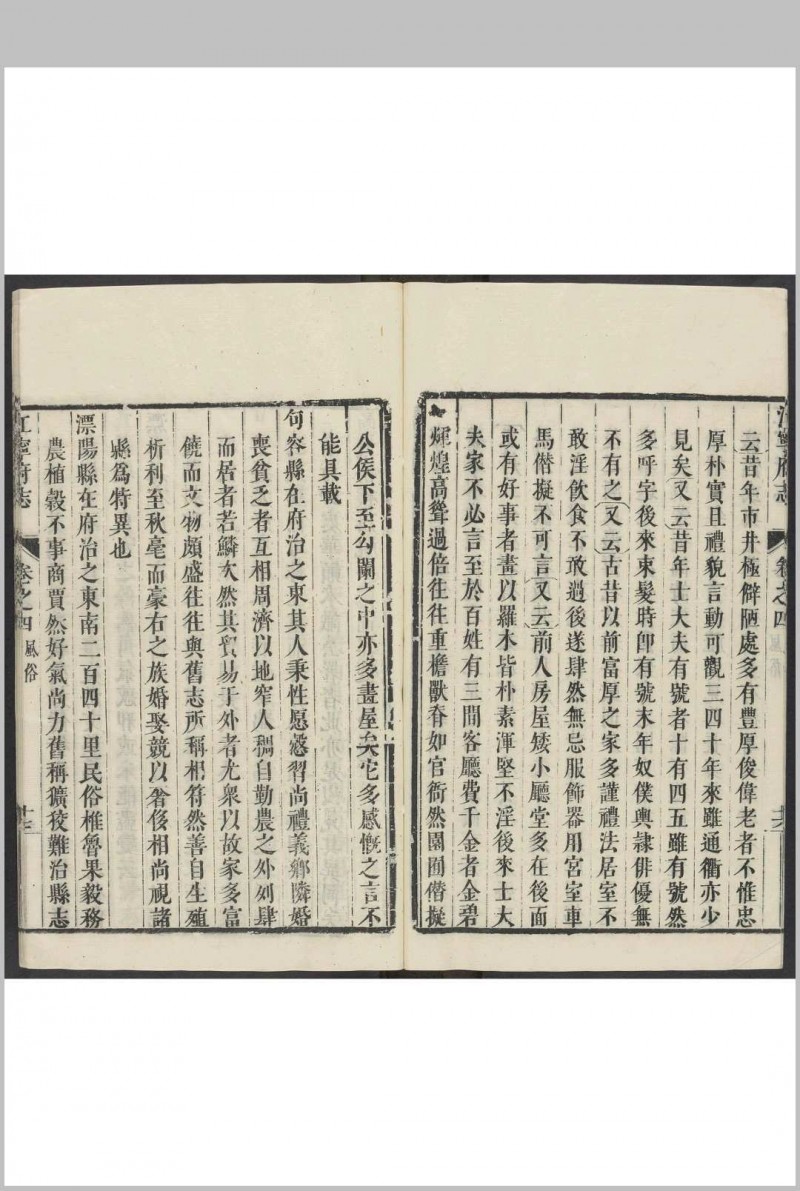 江寧府志 卷之四 風俗
云昔年市井極僻陋處多有豐厚俊偉老者不惟忠
厚朴實且禮貌言動可觀三四十年來雖通衢亦少
見矣又云昔年士大夫有號者十有四五雖有號然
多呼字後來束髮時卽有號末年奴僕輿隸俳優無
不有之又云古昔以前富厚之家多謹禮法居室不
敢淫飲食不敢過後遂肆然無忌服飾器用宮室車
馬僭擬不可言又云前人房屋矮小廳堂多在後面
或有好事者畫以羅木皆朴素渾堅不淫後來士大
夫家不必言至於百姓有三間客廳費千金者金碧
輝煌高聳過倍往往重檐獸脊如官衙然園囿僭擬
公侯下至勾闌之中亦多畫屋矣它多感慨之言不
能具載
句容縣在府治之東其人秉性愿愨習尚禮義鄉隣婚
喪貧乏者互相周濟以地窄人稠自勤農之外列肆
而居者若鱗次然其貿易于外者尤衆以故家多富
饒而文物頗盛往往與舊志所稱相符然善自生殖
析利至秋毫而豪右之族婚娶競以奢侈相尚視諸
縣爲特異也
溧陽縣在府治之東南二百四十里民俗椎魯果毅務
農植穀不事商賈然好氣尚力舊稱獷狡難治縣志
江寧府志 卷之四 風俗